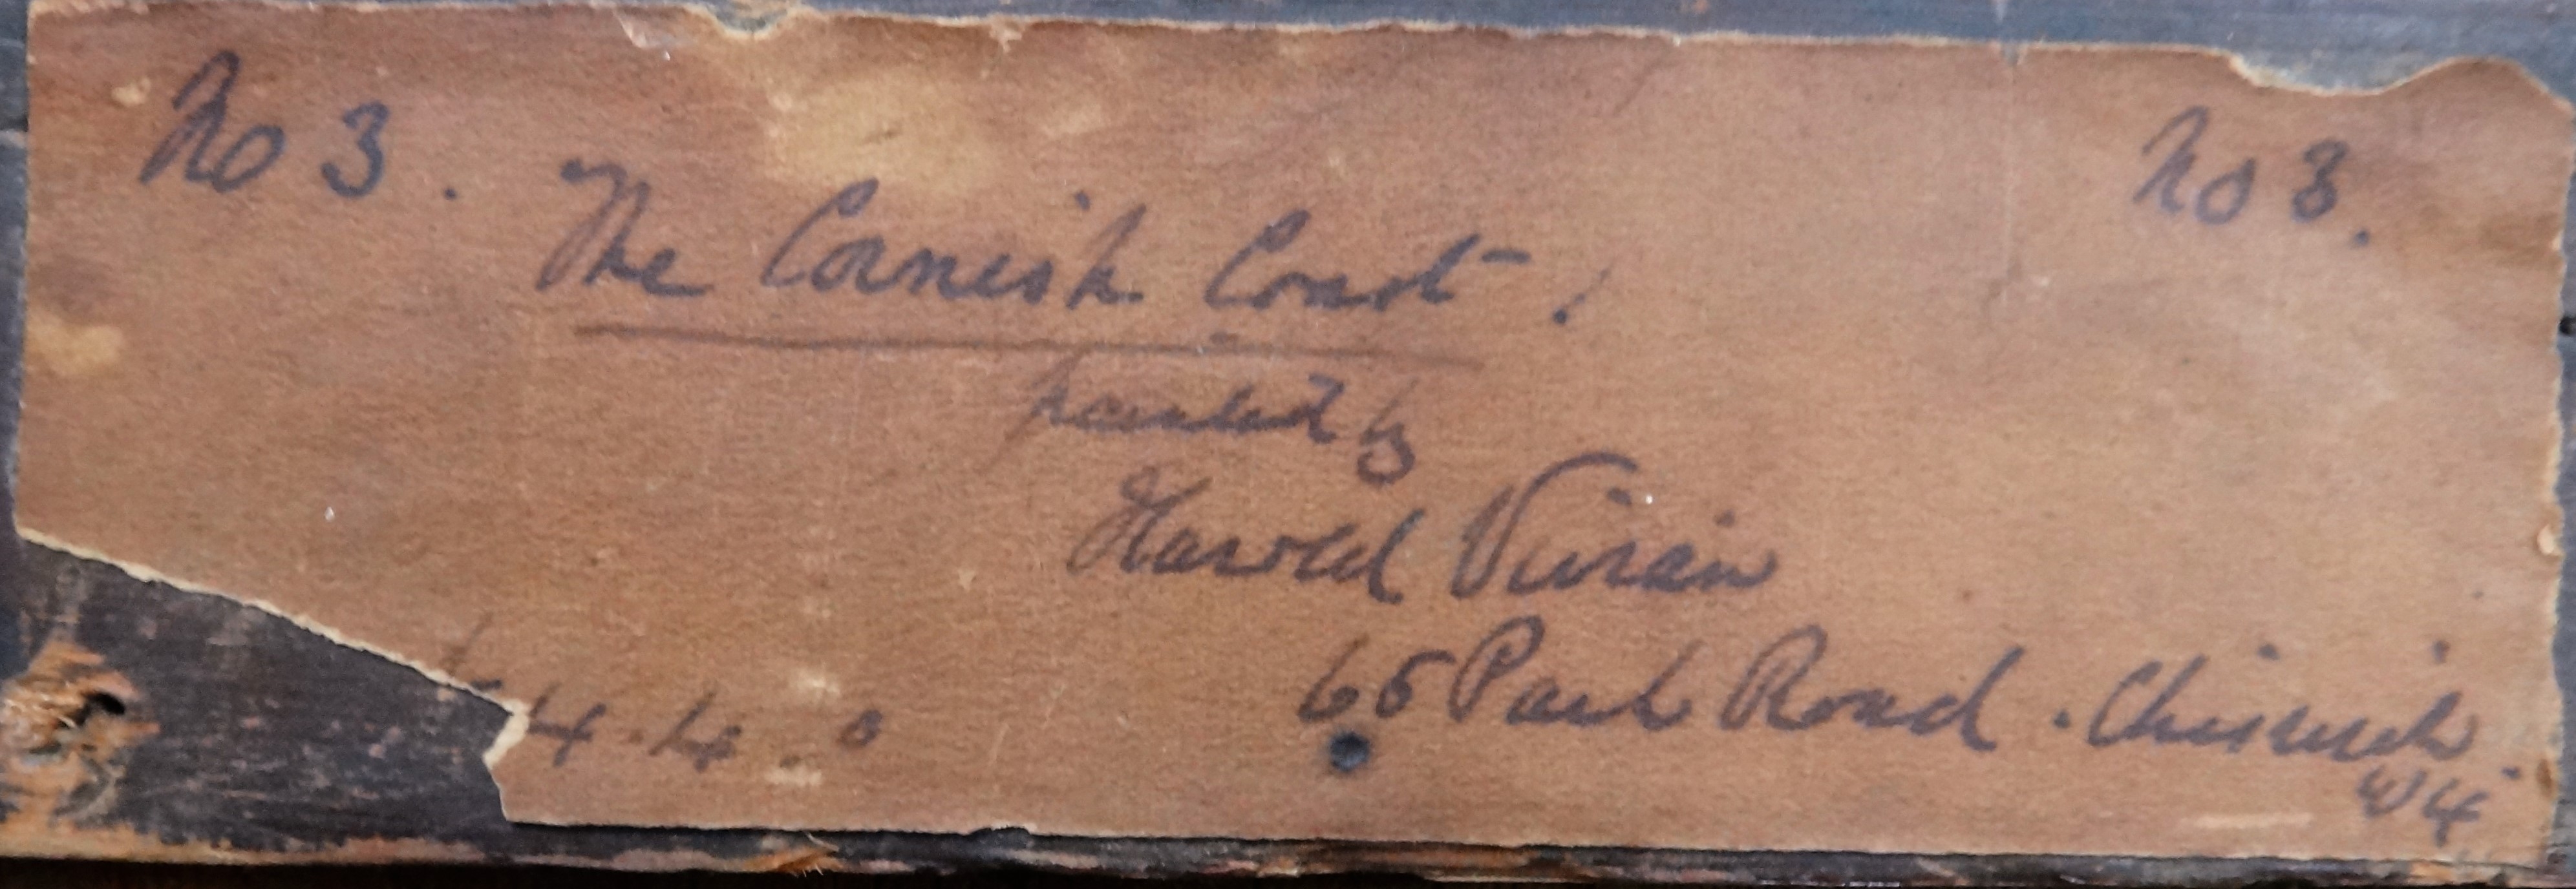 No 3. No 3.
The Cornish Coast.
painted by
Harold Vivian
65 Park Road. Chiswick.
W4
4.4.0